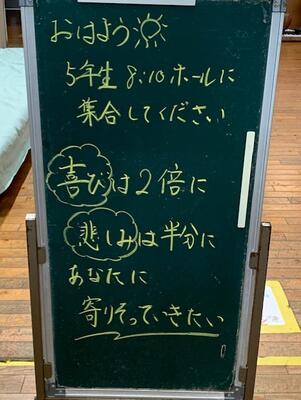 おはよう
5年生 8:10 ホールに
集合してください
喜びは2倍に
悲しみは半分に
あなたに
寄りそっていきたい